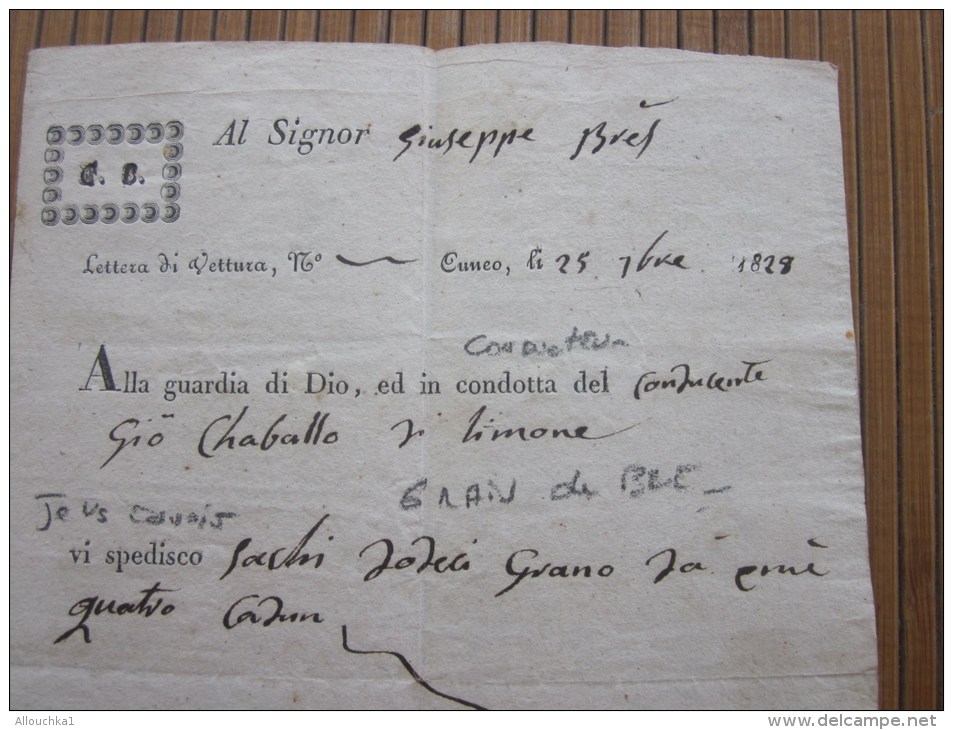 Al Signor Giuseppe Bres
C. B.
Lettera di Vettura, Nº Cuneo, li 25 7bre 1828
Conducteur
Alla guardia di Dio, ed in condotta del Conducente
Gio Chaballo di limone
GRAIN de BLE
Je vs envois
vi spedisco Sachi dodeci Grano da emine
quatro Cadun
Allouchka1
www.delcampe.net